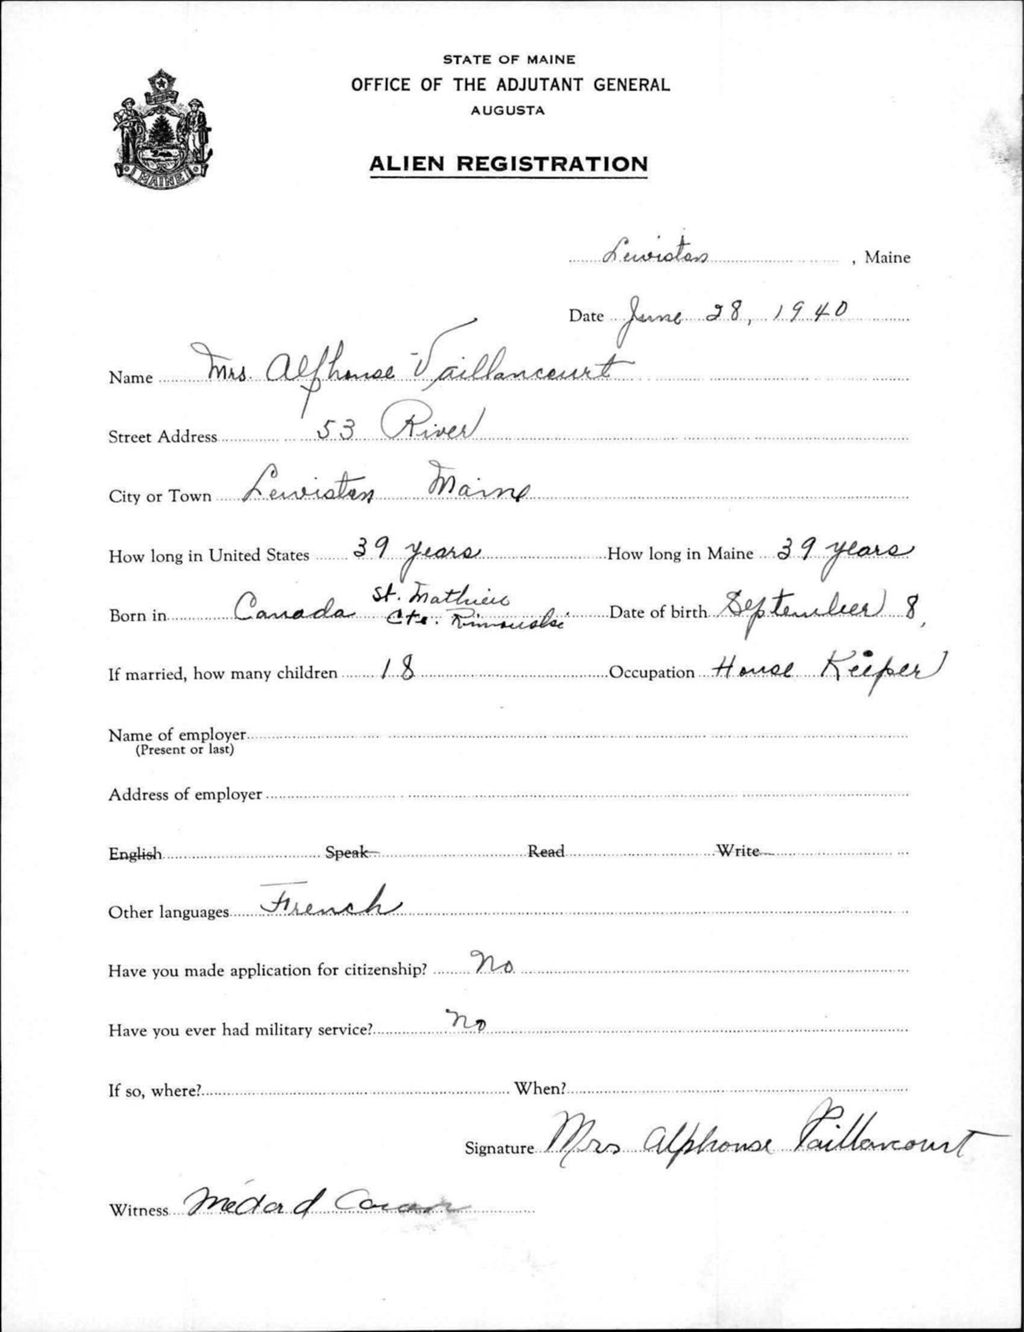 STATE OF MAINE
OFFICE OF THE ADJUTANT GENERAL
AUGUSTA
ALIEN REGISTRATION
MAINE
Lewiston, Maine
Date June 28, 1940
Name Mrs. Alphonse Vaillancourt
Street Address 53 River
City or Town Lewiston Maine
How long in United States 39 years How long in Maine 39 years
Born in Canada St. Mathieu Cte. Rimouski Date of birth September 8,
If married, how many children 18 Occupation House Keeper
Name of employer
(Present or last)
Address of employer
English Speak Read Write
Other languages French
Have you made application for citizenship? No
Have you ever had military service? No
If so, where? When?
Signature Mrs Alphonse Vaillancourt
Witness Médard